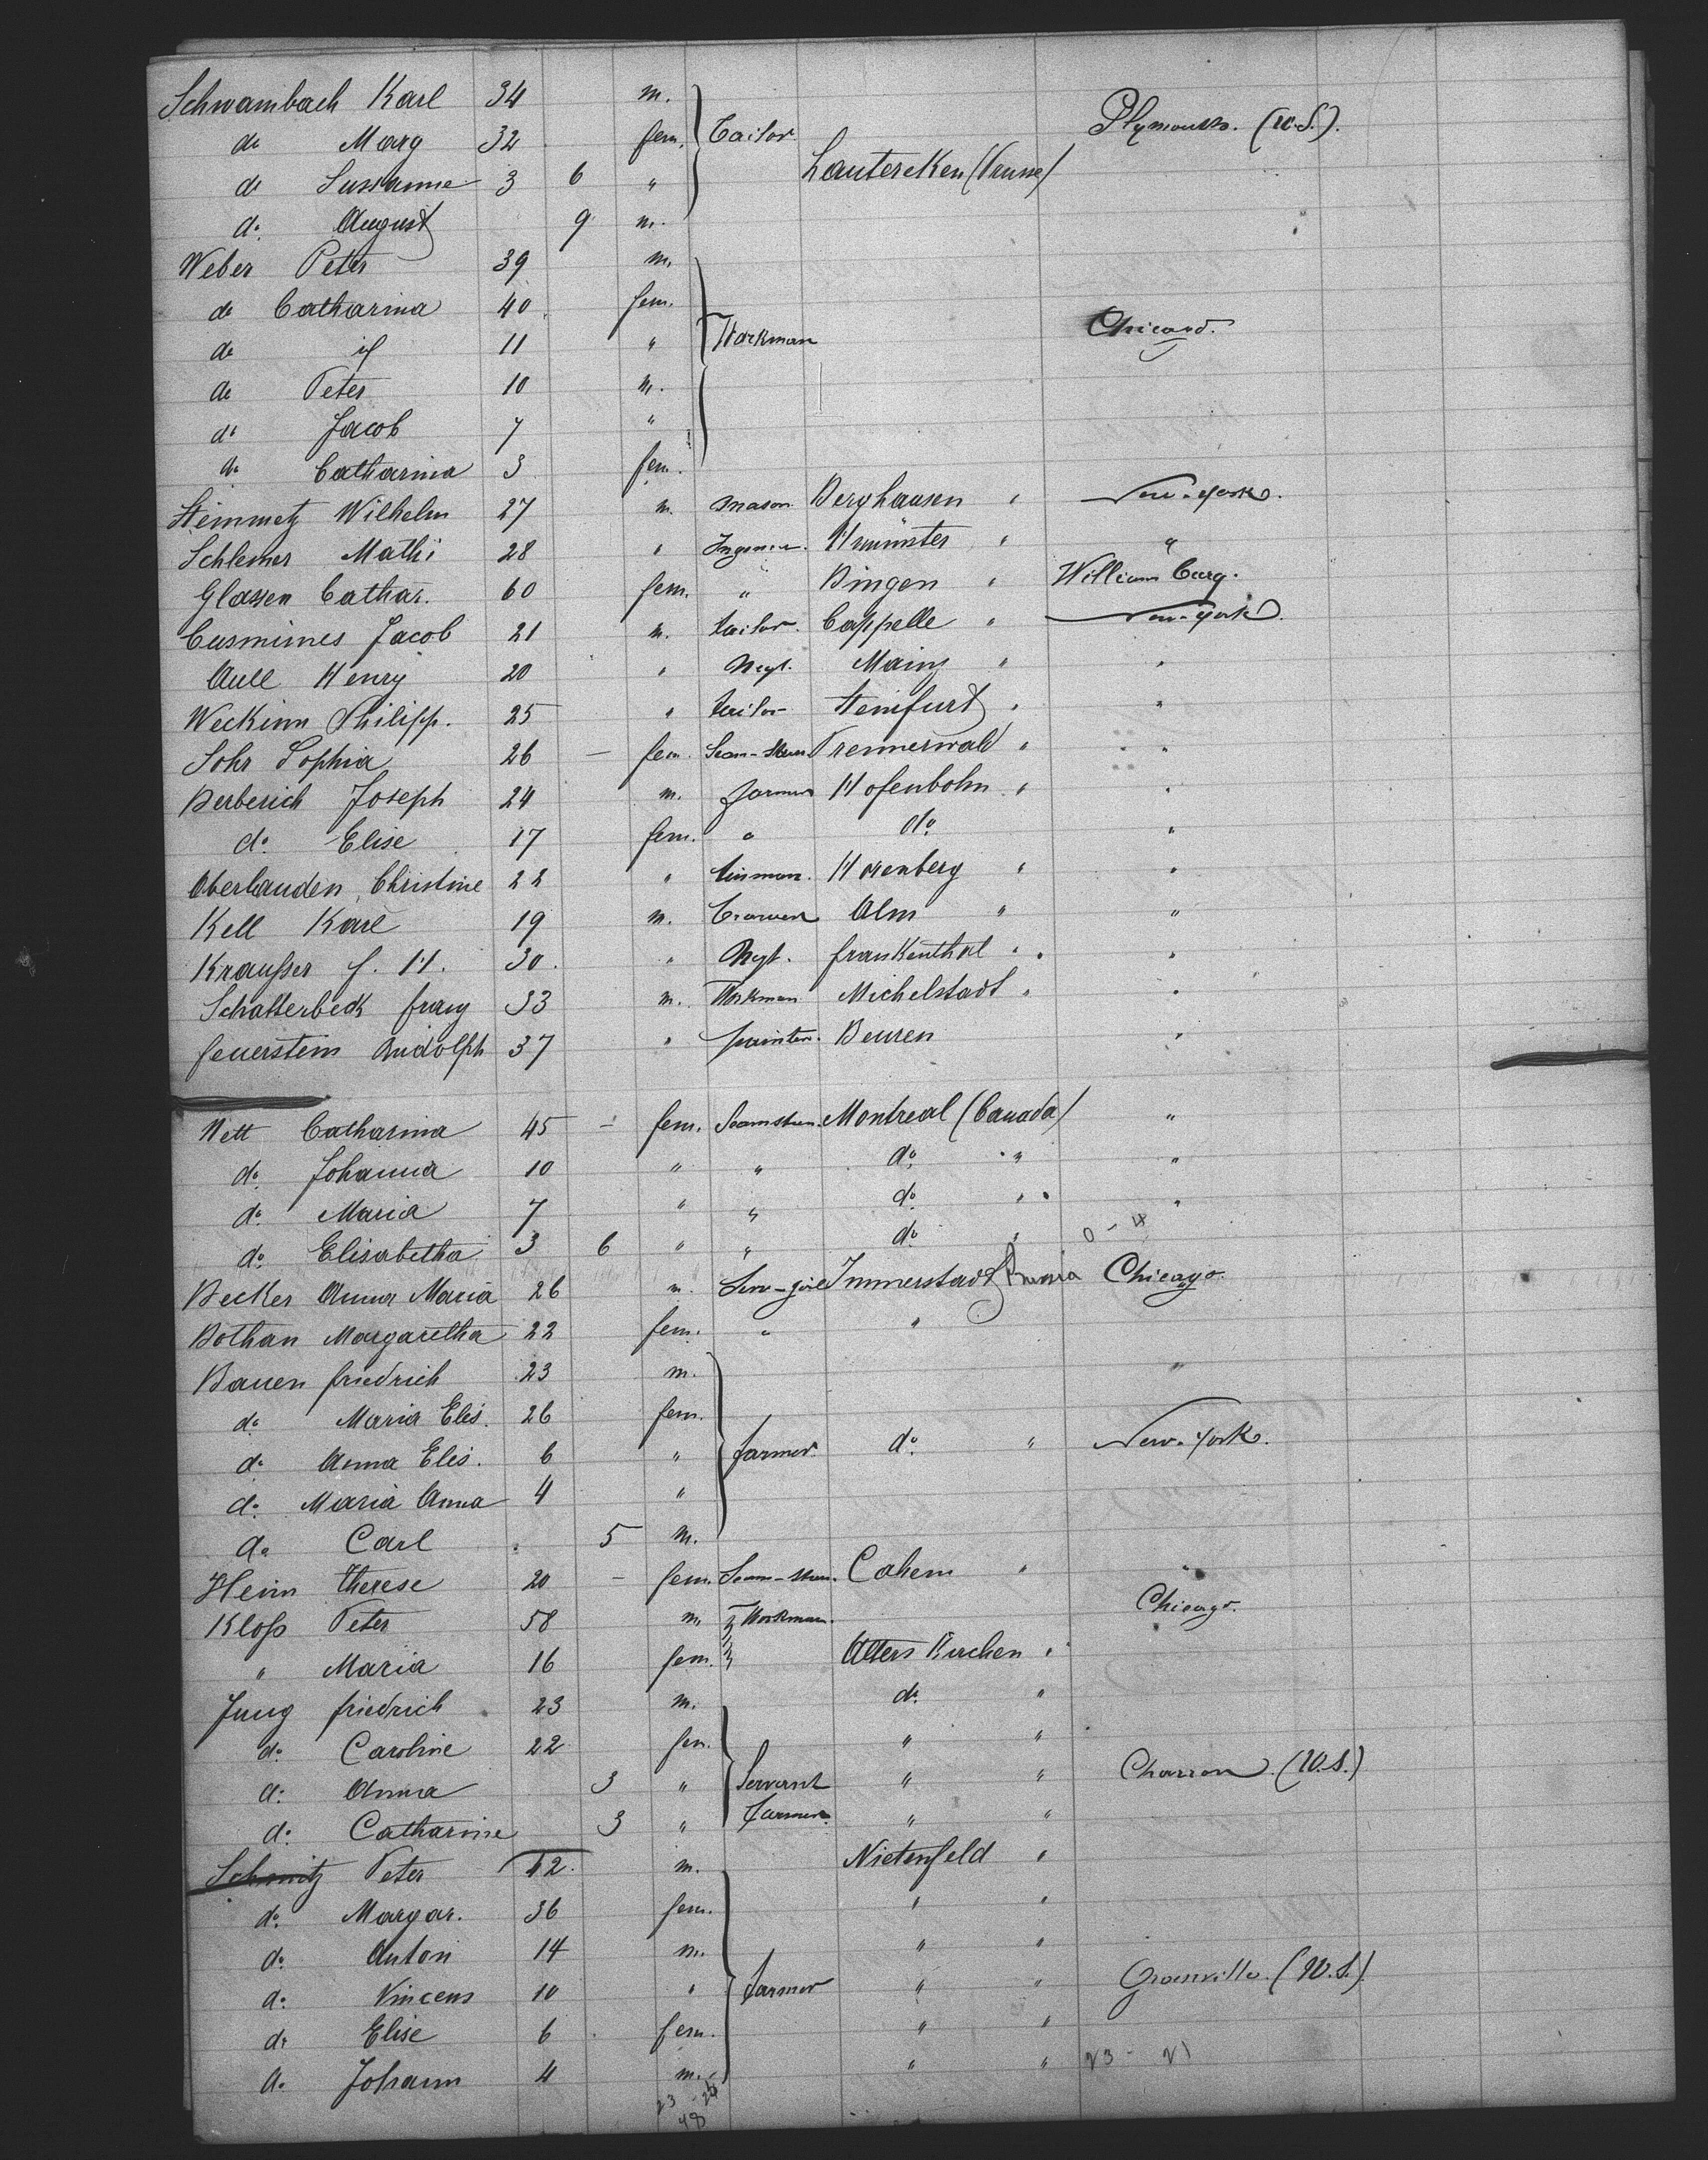 Schwambach Karl 34 m.
do Marg 32 fem. Tailor Plymouth. (U.S.).
do Sussanne 3 6 " Lautereken (Prusse)
do August 9 m.
Weber Peter 39 m.
do Catharina 40 fem.
do id 11 " Workman Chicago.
do Peter 10 m.
do Jacob 7 "
do Catharina 3 fem.
Steinmetz Wilhelm 27 m. mason Berghausen " New-York.
Schlemer Mathi 28 " Hmünster " "
Glassen Cathar. 60 fem. " Bingen " William Burg.
Jacob 21 m. tailor. Cappelle " New-York.
Aull Henry 20 " Negt. Mainz " "
Weckinn Philipp. 25 " tailor Steinfurt " "
Sohr Sophia 26 – fem. "
Berberich Joseph 24 m. farmer Hofenbohn " "
do. Elise 17 fem. " do. "
Oberlauden, Christine 22 " tinman. Horenberg " "
Kell Karl 19 m. Alm " "
Kraußer f. H. 30. " Negt. frankenthal " "
Schatterbeck franz 33 m. Workman Michelstadt " "
feuerstein Rudolph 37 " painter. Beuren "
Nett Catharina 45 – fem. Seamstress. Montreal (Canada) "
do. Johanna 10 " " do. " "
do. Maria 7 " " do " "
do. Elisabetha 3 6 " " do " 0 - 4
Becker Anna Maria 26 m. Serv-girl Immerstadt Prussia Chicago.
Bothan Margaretha 22 fem. " "
Bauen friedrich 23 m. "
do Maria Elis. 26 fem.
do Anna Elis. 6 " farmer. do. " New-York.
do. Maria Anna 4 "
do Carl 5 m.
Heim therese 20 – fem. Seam-stress. Cohem " "
Kloß Peter 58 m. Workman. Chicago.
" Maria 16 fem. Alters Kirchen "
Jung friedrich 23 m. do. "
do. Caroline 22 fem. " "
do. Anna 3 " Servant " " (U.S.)
do. Catharine 3 " farmer. " "
Schmitz Peter 42. m. Nietenfeld "
do. Margar. 36 fem. " "
do. Anton 14 m. " "
do. Vincens 10 " farmer " " Granville. (U.S.).
do Elise 6 fem. " "
do Johann 4 m. " " 23 - 21
23 - 26
48